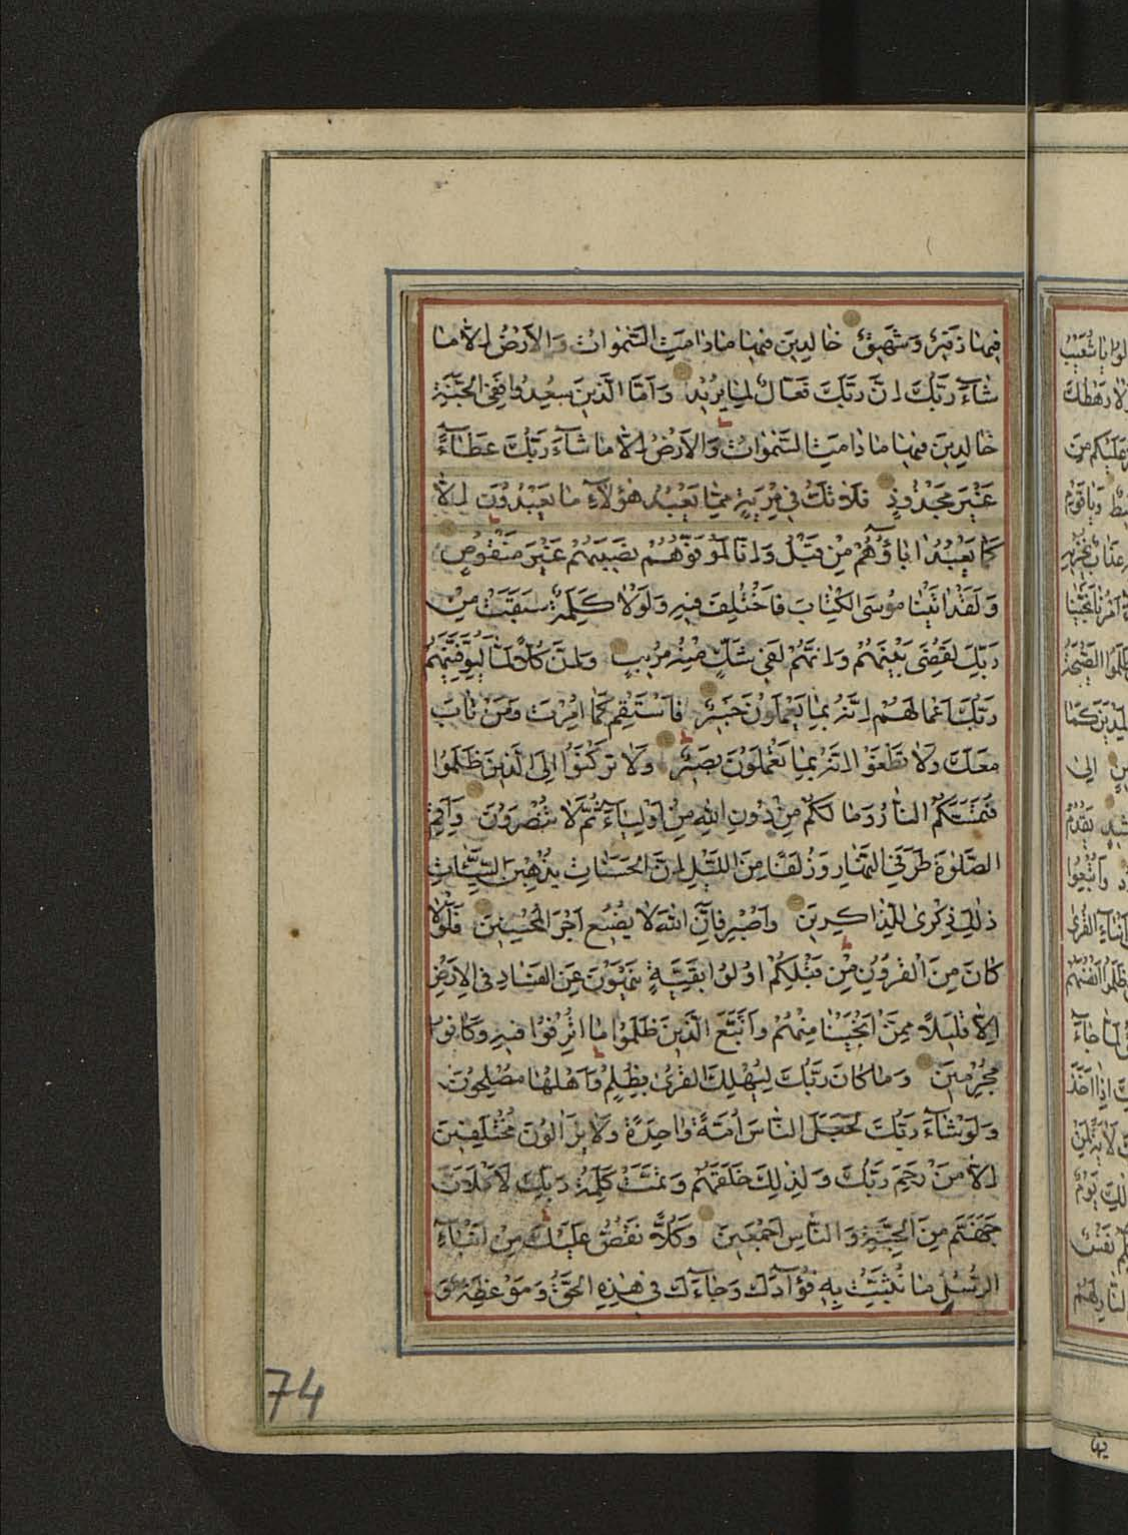 فِيهَا زَفِيرٌ وَشَهِيقٌ خَالِدِينَ فِيهَا مَا دَامَتِ السَّمٰوَاتُ وَالْأَرْضُ إِلَّا مَا
شَاءَ رَبُّكَ إِنَّ رَبَّكَ فَعَّالٌ لِمَا يُرِيدُ وَأَمَّا الَّذِينَ سُعِدُوا فَفِي الْجَنَّةِ
خَالِدِينَ فِيهَا مَا دَامَتِ السَّمٰوَاتُ وَالْأَرْضُ إِلَّا مَا شَاءَ رَبُّكَ عَطَاءً
غَيْرَ مَجْذُوذٍ فَلَا تَكُ فِي مِرْيَةٍ مِمَّا يَعْبُدُ هٰؤُلَاءِ مَا يَعْبُدُونَ إِلَّا
كَمَا يَعْبُدُ اٰبَاؤُهُمْ مِنْ قَبْلُ وَإِنَّا لَمُوَفُّوهُمْ نَصِيبَهُمْ غَيْرَ مَنْقُوصٍ
وَلَقَدْ اٰتَيْنَا مُوسَى الْكِتَابَ فَاخْتُلِفَ فِيهِ وَلَوْلَا كَلِمَةٌ سَبَقَتْ مِنْ
رَبِّكَ لَقُضِيَ بَيْنَهُمْ وَإِنَّهُمْ لَفِي شَكٍّ مِنْهُ مُرِيبٍ وَإِنَّ كُلًّا لَمَّا لَيُوَفِّيَنَّهُمْ
رَبُّكَ أَعْمَالَهُمْ إِنَّهُ بِمَا يَعْمَلُونَ خَبِيرٌ فَاسْتَقِمْ كَمَا أُمِرْتَ وَمَنْ تَابَ
مَعَكَ وَلَا تَطْغَوْا إِنَّهُ بِمَا تَعْمَلُونَ بَصِيرٌ وَلَا تَرْكَنُوا إِلَى الَّذِينَ ظَلَمُوا
فَتَمَسَّكُمُ النَّارُ وَمَا لَكُمْ مِنْ دُونِ اللّٰهِ مِنْ أَوْلِيَاءَ ثُمَّ لَا تُنْصَرُونَ وَأَقِمِ
الصَّلٰوةَ طَرَفَيِ النَّهَارِ وَزُلَفًا مِنَ اللَّيْلِ إِنَّ الْحَسَنَاتِ يُذْهِبْنَ السَّيِّئَاتِ
ذٰلِكَ ذِكْرٰى لِلذَّاكِرِينَ وَاصْبِرْ فَإِنَّ اللّٰهَ لَا يُضِيعُ أَجْرَ الْمُحْسِنِينَ فَلَوْلَا
كَانَ مِنَ الْقُرُونِ مِنْ قَبْلِكُمْ أُولُوا بَقِيَّةٍ يَنْهَوْنَ عَنِ الْفَسَادِ فِي الْأَرْضِ
إِلَّا قَلِيلًا مِمَّنْ أَنْجَيْنَا مِنْهُمْ وَاتَّبَعَ الَّذِينَ ظَلَمُوا مَا أُتْرِفُوا فِيهِ وَكَانُوا
مُجْرِمِينَ وَمَا كَانَ رَبُّكَ لِيُهْلِكَ الْقُرٰى بِظُلْمٍ وَأَهْلُهَا مُصْلِحُونَ
وَلَوْ شَاءَ رَبُّكَ لَجَعَلَ النَّاسَ أُمَّةً وَاحِدَةً وَلَا يَزَالُونَ مُخْتَلِفِينَ
إِلَّا مَنْ رَحِمَ رَبُّكَ وَلِذٰلِكَ خَلَقَهُمْ وَتَمَّتْ كَلِمَةُ رَبِّكَ لَأَمْلَأَنَّ
جَهَنَّمَ مِنَ الْجِنَّةِ وَالنَّاسِ أَجْمَعِينَ وَكُلًّا نَقُصُّ عَلَيْكَ مِنْ أَنْبَاءِ
الرُّسُلِ مَا نُثَبِّتُ بِهِ فُؤَادَكَ وَجَاءَكَ فِي هٰذِهِ الْحَقُّ وَمَوْعِظَةٌ وَ
74